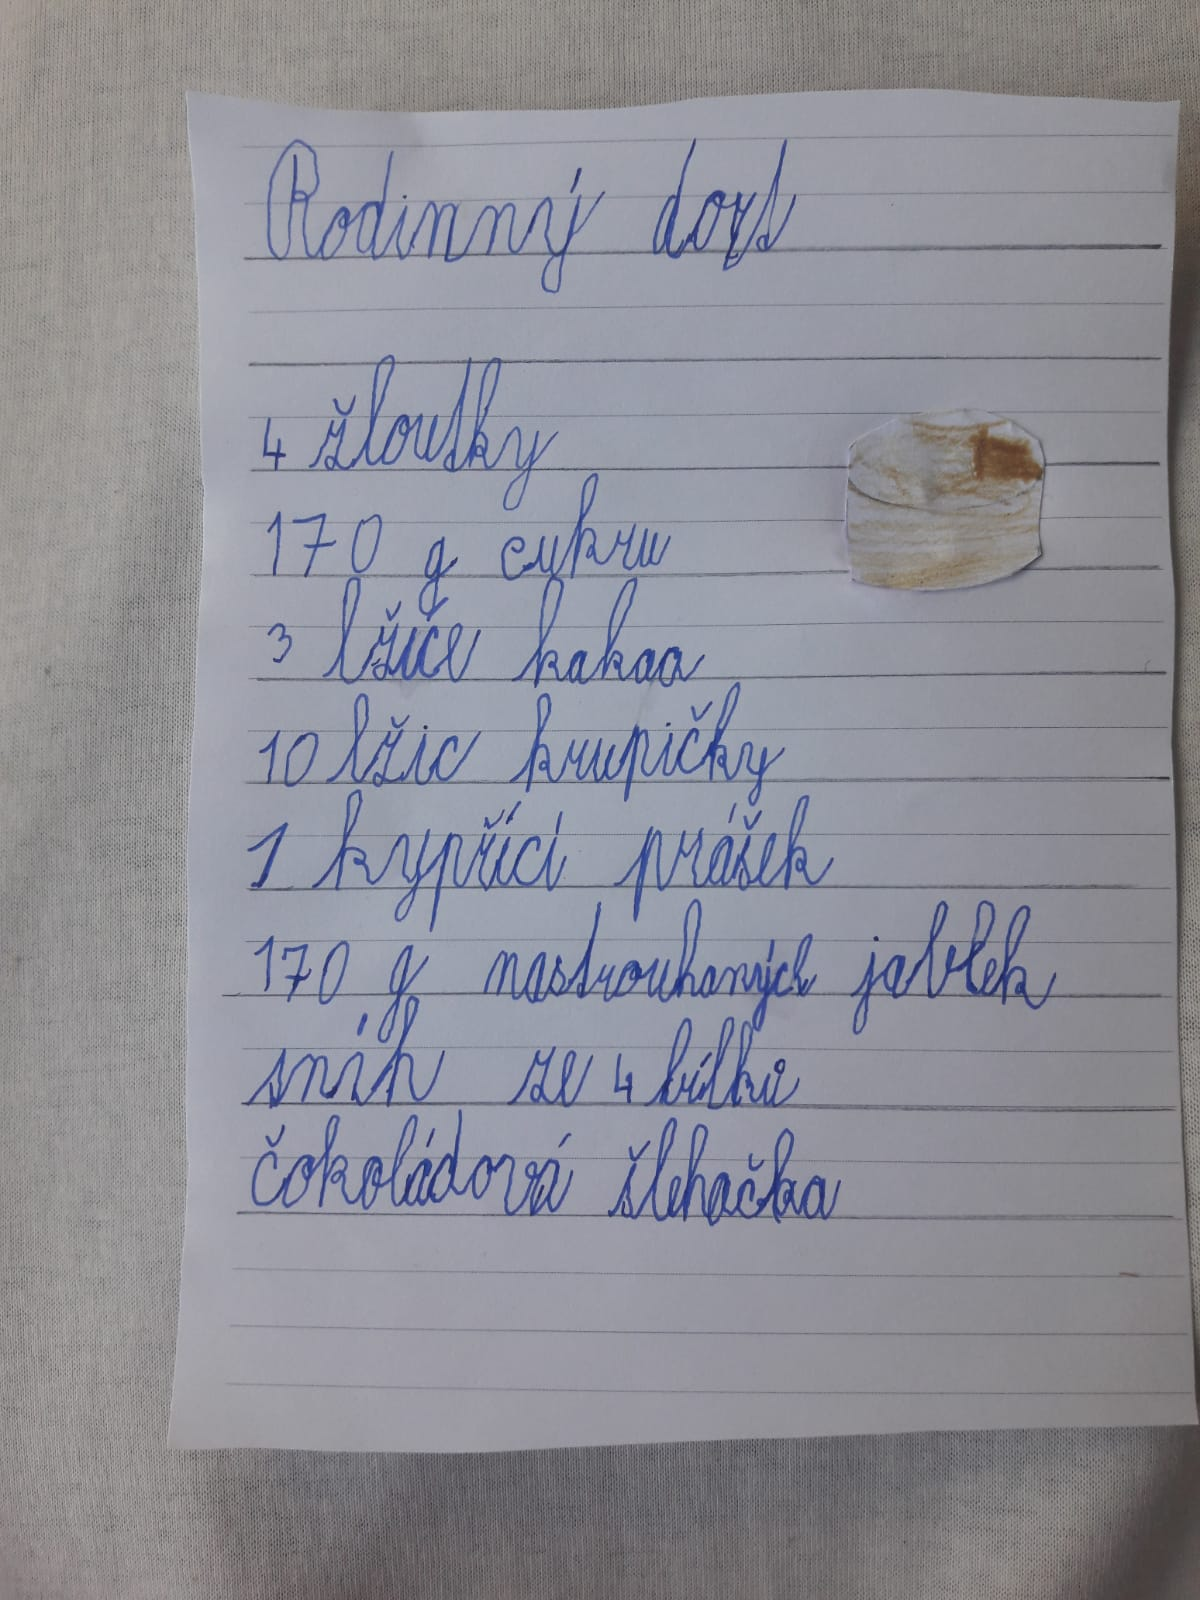 Rodinný dort
4 žloutky
170 g cukru
3 lžíce kakaa
10 lžic krupičky
1 kypřící prášek
170 g nastrouhaných jablek
sníh ze 4 bílků
čokoládová šlehačka